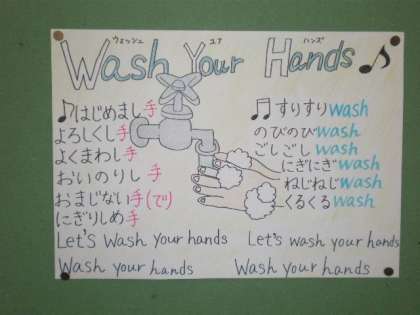 ウォッシュ ユア ハンズ
Wash Your Hands♪
♪はじめまし手
よろしくし手
よくまわし手
おいのりし手
おまじない手(で)
にぎりしめ手
♬すりすりwash
のびのびwash
ごしごしwash
にぎにぎwash
ねじねじwash
くるくるwash
Let's wash your hands Let's wash your hands
Wash your hands Wash your hands